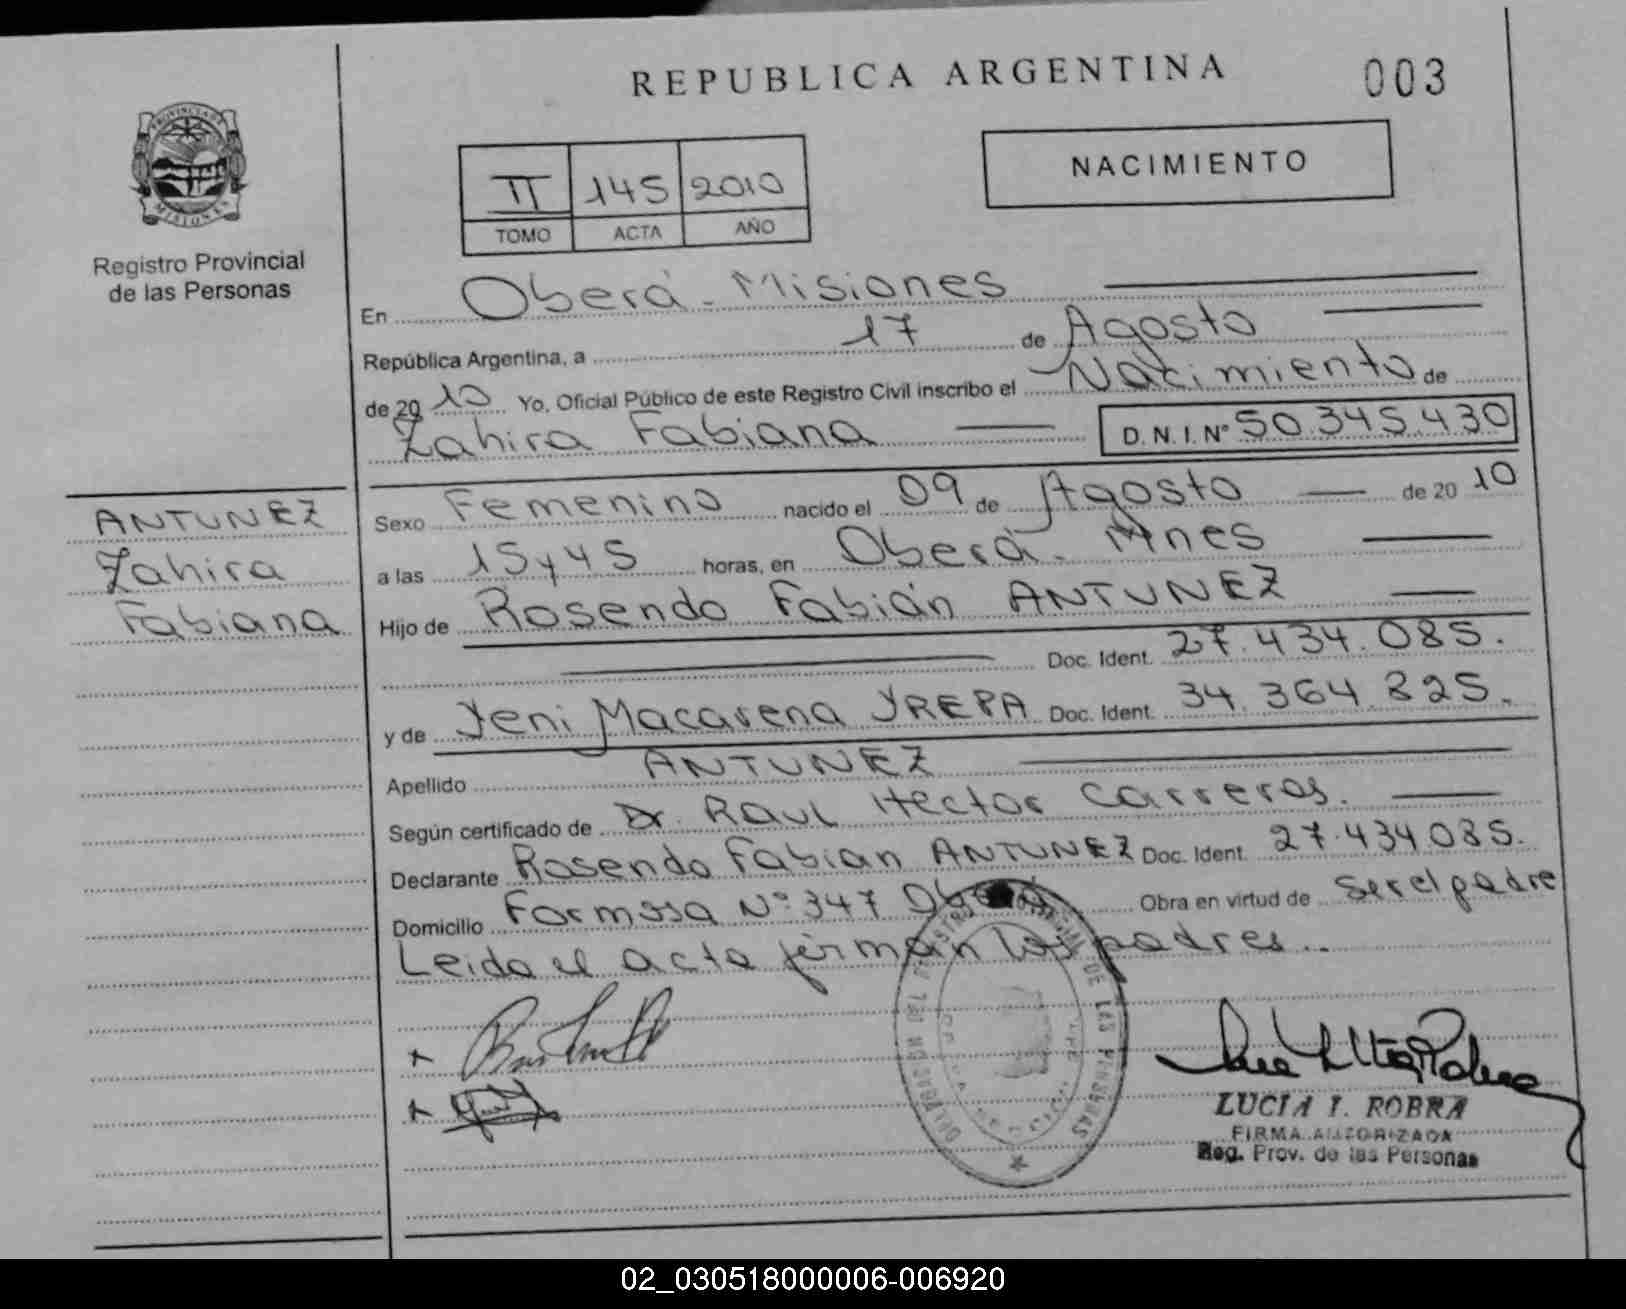 REPUBLICA ARGENTINA
003
PROVINCIA DE
MISIONES
Registro Provincial
de las Personas
II 145 2010
TOMO ACTA AÑO
NACIMIENTO
En Oberá - Misiones
República Argentina, a 17 de Agosto
de 2010 Yo, Oficial Público de este Registro Civil inscribo el Nacimiento de
Zahira Fabiana D.N.I.Nº 50.345.430
ANTUNEZ
Zahira
Fabiana
Sexo Femenino nacido el 09 de Agosto de 2010
a las 15 y 45 horas, en Oberá - Mnes
Hijo de Rosendo Fabián ANTUNEZ
Doc. Ident. 27.434.085.
y de Yeni Macarena YREPA Doc. Ident. 34.364.825.
Apellido ANTUNEZ
Según certificado de Dr. RAUL Hector Carreras.
Declarante Rosendo Fabian ANTUNEZ Doc. Ident. 27.434.085.
Domicilio Formosa Nº 347 Obra en virtud de ser el padre
Leida el acta firman los padres..
LUCIA I. ROBRA
FIRMA AUTORIZADA
Reg. Prov. de las Personas
02_030518000006-006920